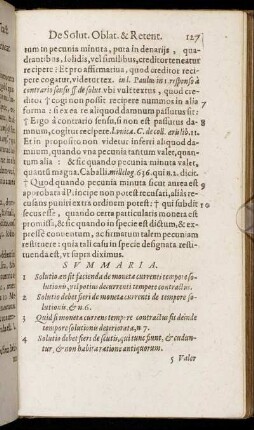 De Solut. Oblat. & Retent. 127
tum in pecunia minuta, pura in denarijs, quadrantibus, solidis, vel similibus, creditor teneatur
recipere? Et pro affirmatiua, quod creditor recipere cogatur, videtur tex. in l. Paulus in 1. responso à
contrario sensu ff de solut. vbi vult textus, quod creditor † cogi non possit recipere nummos in alia
forma: si ex ea re aliquod damnum passurus sit:
† Ergo à contrario sensu, si non est passurus damnum, cogitur recipere.
Et in proposito non videtur inferri aliquod damnum, quando vna pecunia tantum valet, quantum alia: & sic quando pecunia minuta valet,
quantū magna. Caball. milleloq. 636. qui n. 2. dicit.
† Quod quando pecunia minuta sicut aurea est
approbata à Principe non potest recusari, aliàs recusans puniri extra ordinem potest: † qui subdit
secus esse, quando certa particularis moneta est
promissa, & sic quando in specie est dictum, & expressè conuentum, ac firmatum talem pecuniam
restituere: quia tali casu in specie designata restituenda est, vt supra diximus.
SVMMARIA.
1 Solutio an sit facienda de moneta currenti tempore solutionis, vel potius decurrenti tempore contractus.
2 Solutio debet fieri de moneta currenti de tempore solutionis, & n. 6.
3 Quid si moneta currens tempore contractus sit deinde
tempore solutionis deteriorata, n 7.
4 Solutio debet fieri de scutis, qui tunc sunt, & cuduntur, & non habita ratione antiquorum.
5 Valor